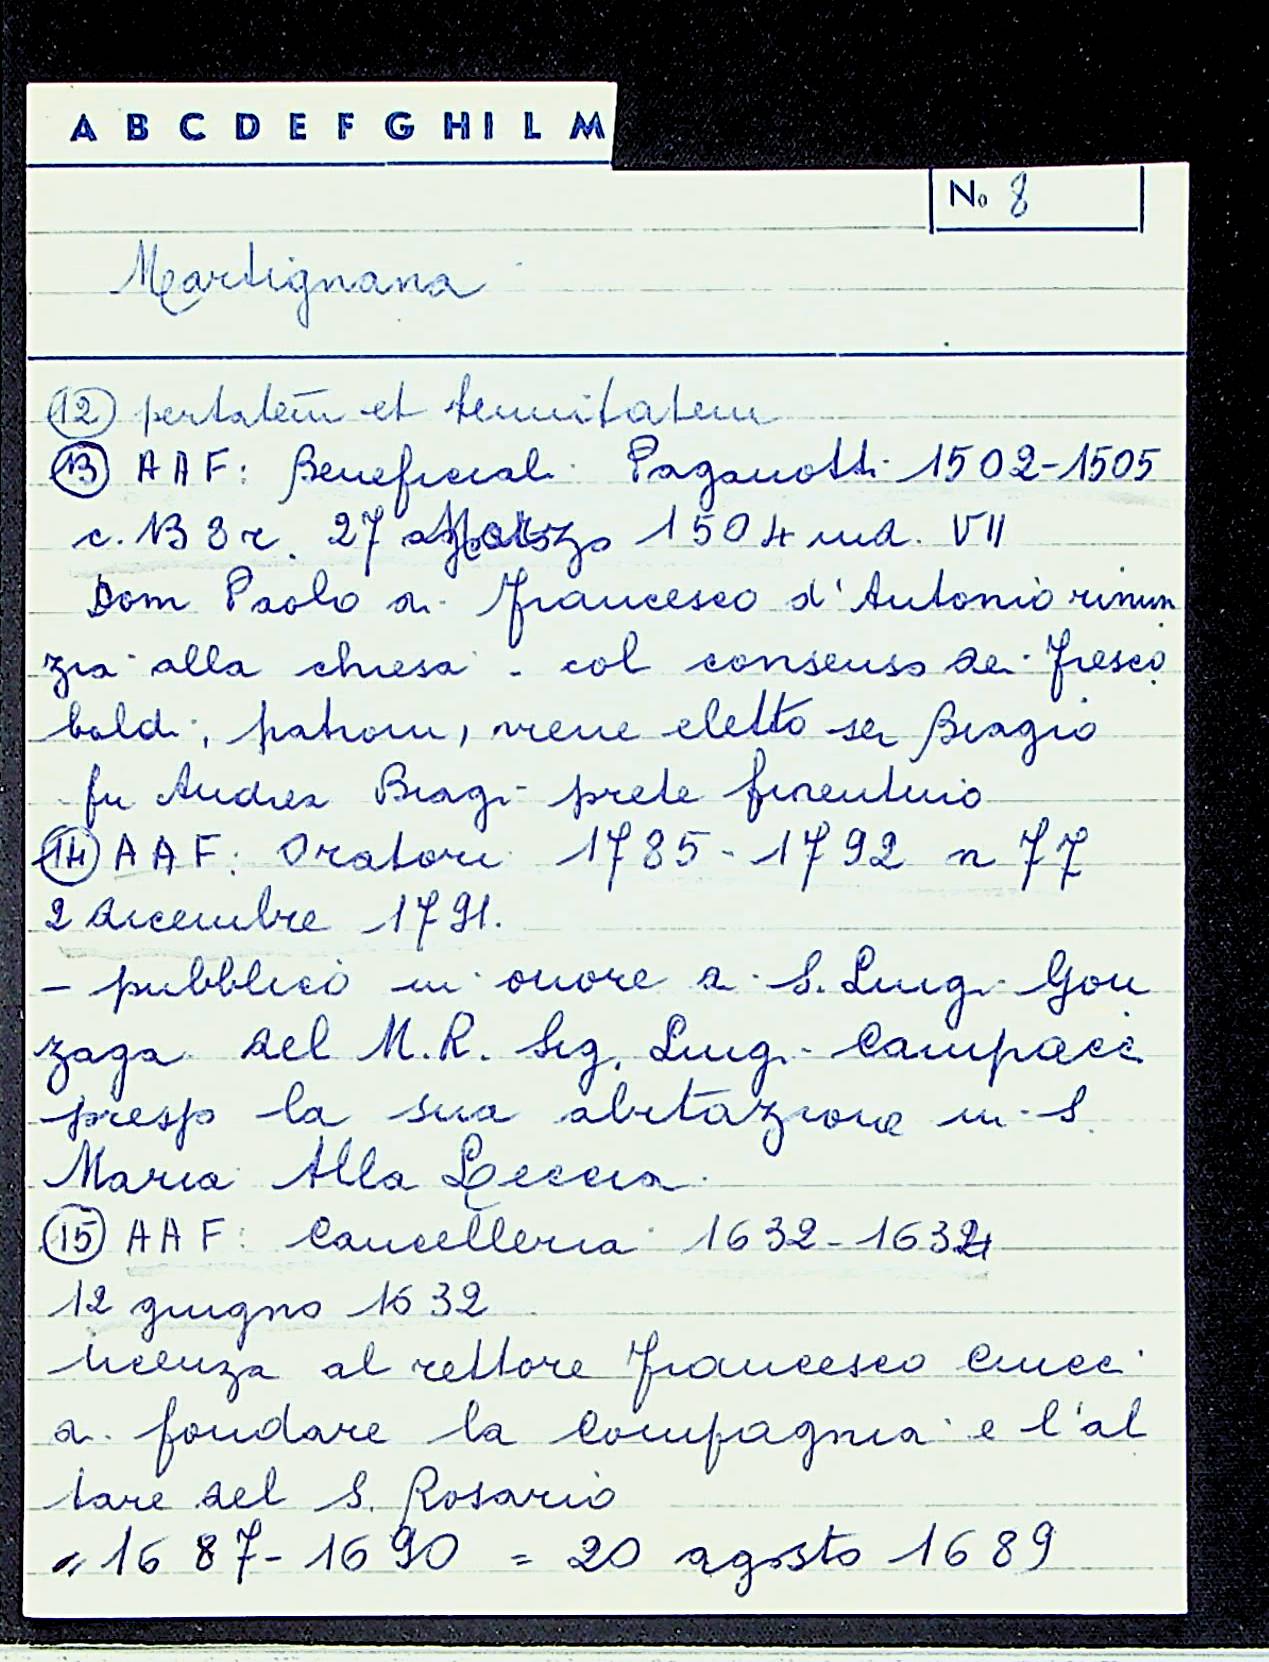 A B C D E F G H I L M
No 8
Martignana
(12) pertatem et tenuitatem
(13) A A F: Beneficiali Paganotti 1502-1505
c. 138r. 27 Marzo 1504 ind. VII
Dom Paolo di Francesco d'Antonio rinun
zia alla chiesa - col consenso dei Fresco
baldi, patroni, viene eletto ser Biagio
fu Andrea Biagi prete fiorentino
(14) A A F: Oratori 1785-1792 n 77
2 dicembre 1791.
- pubblico in onore di S. Luigi Gon
zaga del M.R. Sig. Luigi Campacci
presso la sua abitazione in S.
Maria Alla Leccia
(15) A A F: Cancelleria 1632-1634
12 giugno 1632
licenza al rettore Francesco Ciucci
di fondare la Compagnia e l'al
tare del S. Rosario
" 1687-1690 = 20 agosto 1689